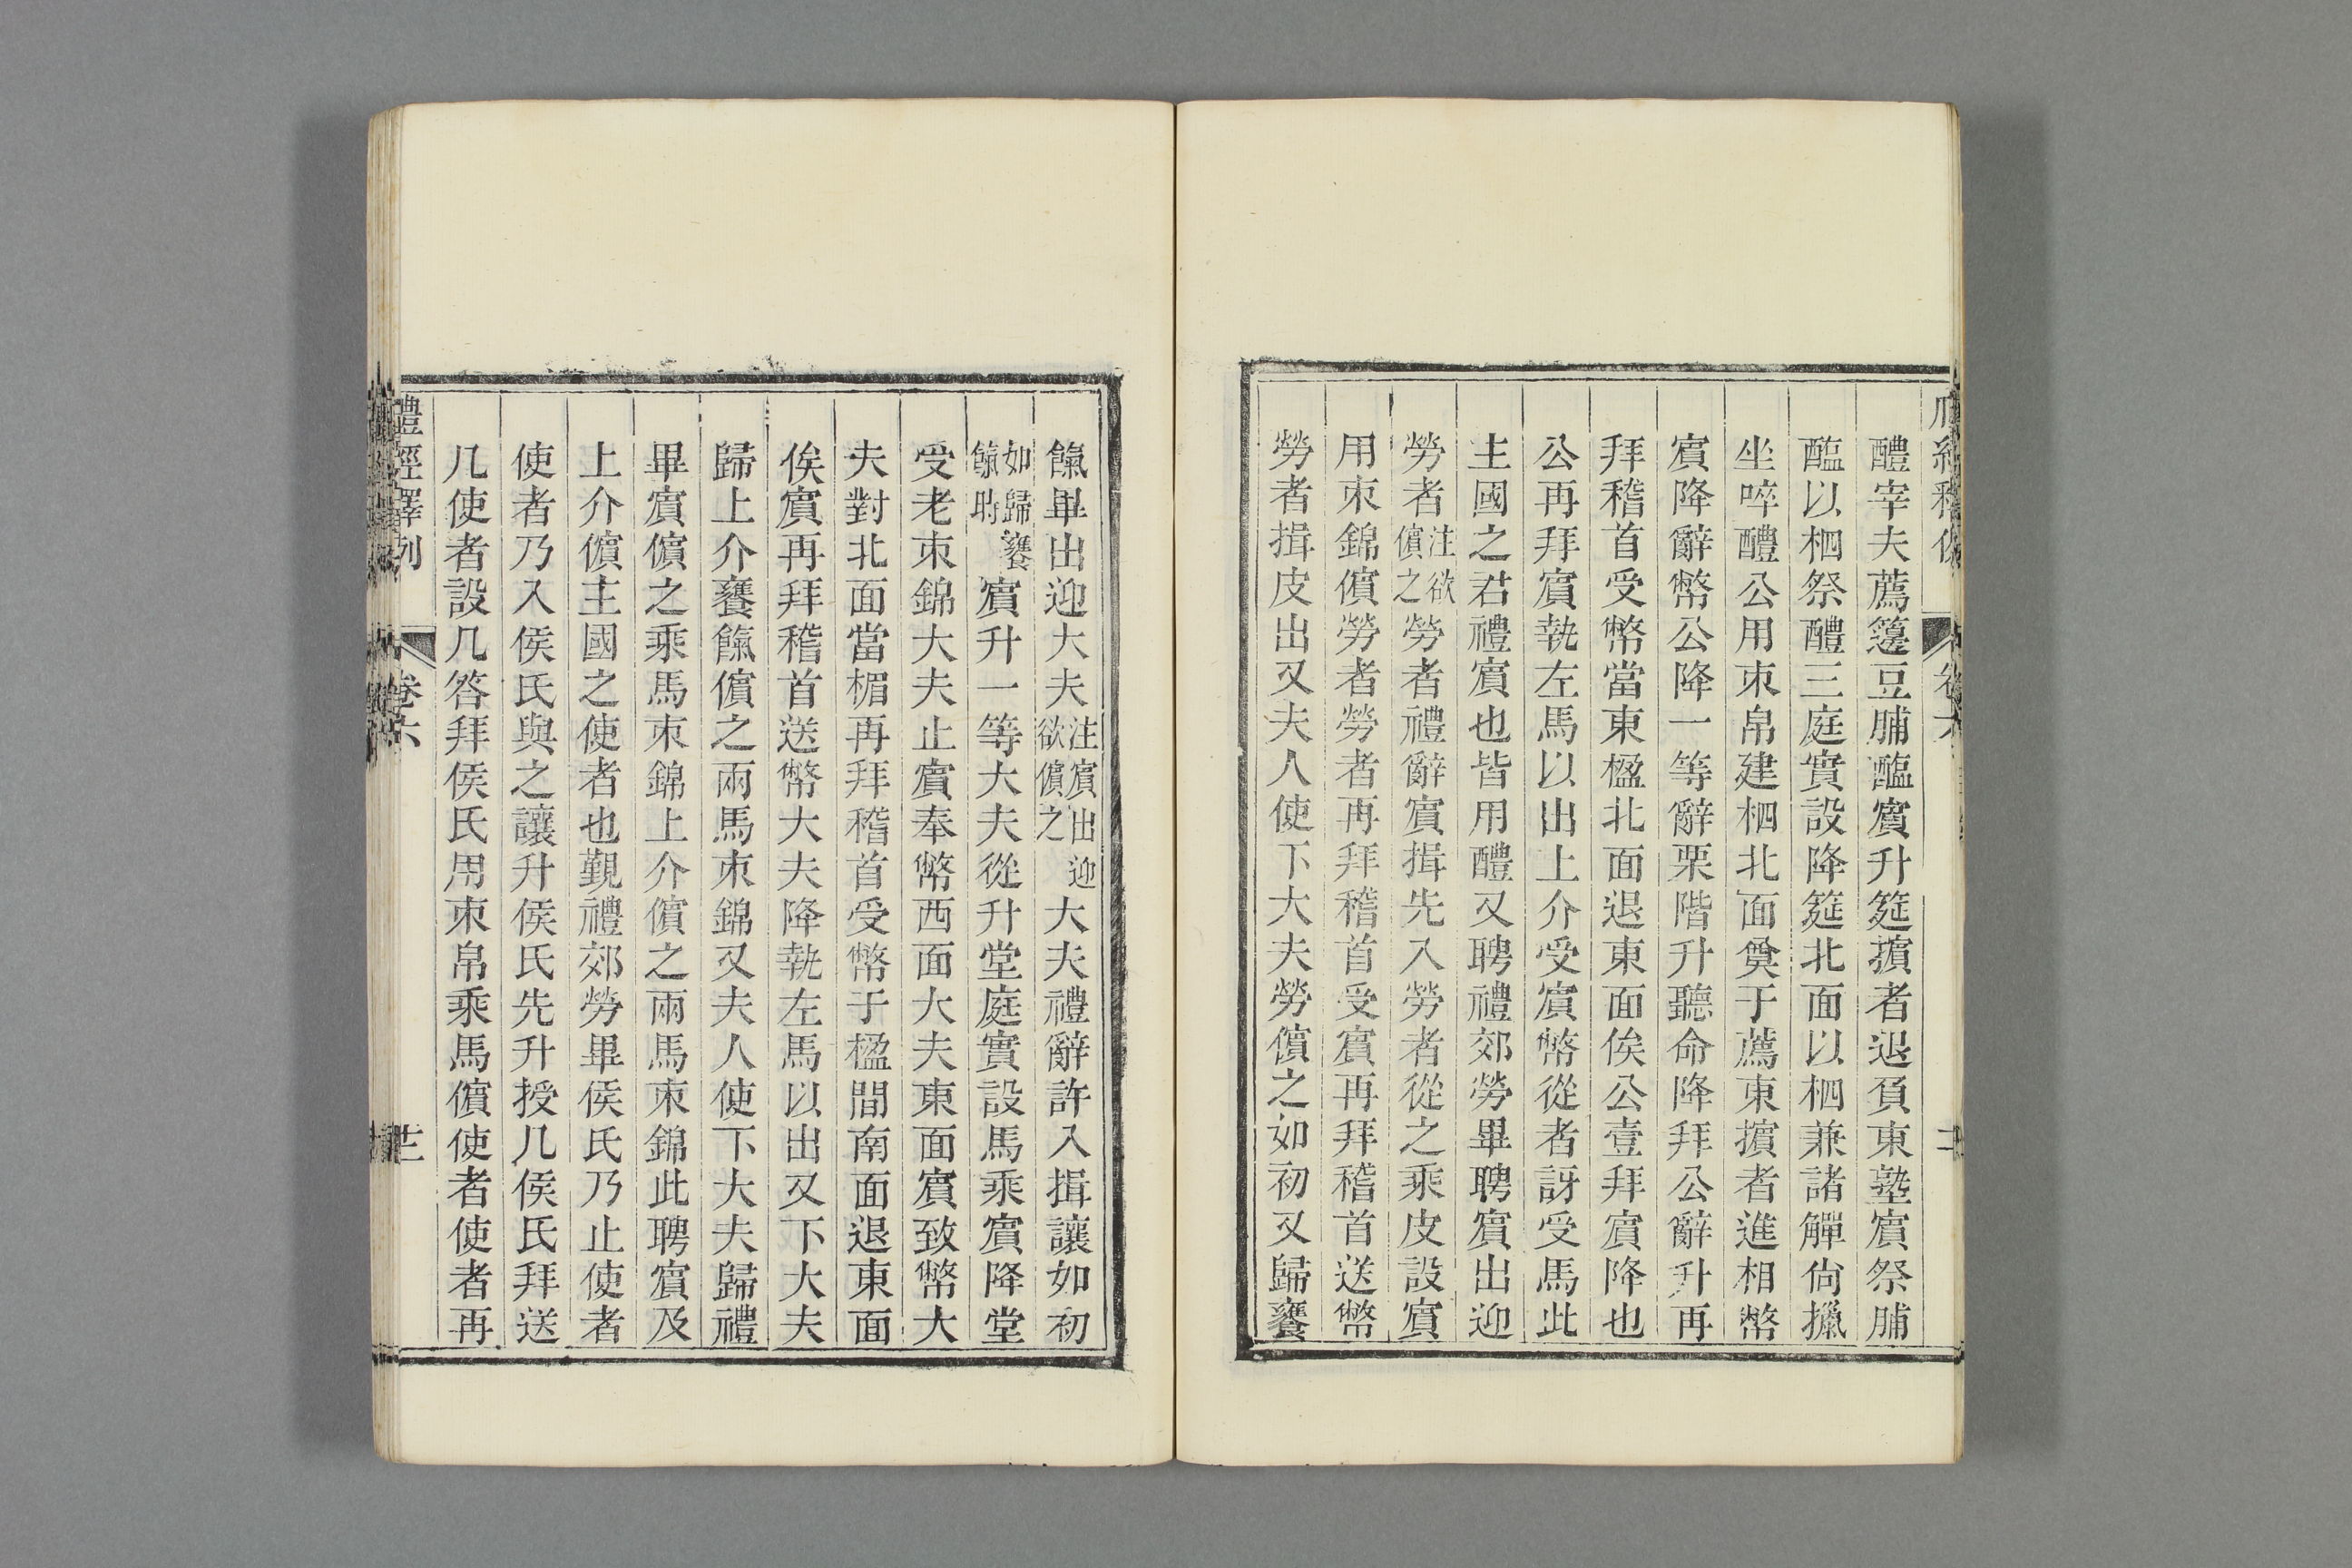 醴宰夫薦籩豆脯醢賓升筵擯者退負東塾賓祭脯
醢以柶祭醴三庭實設降筵北面以柶兼諸觶尙擸
坐啐醴公用束帛建柶北面奠于薦東擯者進相幣
賓降辭幣公降一等辭栗階升聽命降拜公辭升再
拜稽首受幣當東楹北面退東面俟公壹拜賓降也
公再拜賓執左馬以出上介受賓幣從者訝受馬此
主國之君禮賓也皆用醴又聘禮郊勞畢聘賓出迎
勞者注欲儐之勞者禮辭賓揖先入勞者從之乘皮設賓
用束錦儐勞者勞者再拜稽首受賓再拜稽首送幣
勞者揖皮出又夫人使下大夫勞儐之如初又歸饔
餼畢出迎大夫注賓出迎欲儐之大夫禮辭許入揖讓如初
如歸饔餼時賓升一等大夫從升堂庭實設馬乘賓降堂
受老束錦大夫止賓奉幣西面大夫東面賓致幣大
夫對北面當楣再拜稽首受幣于楹間南面退東面
俟賓再拜稽首送幣大夫降執左馬以出又下大夫
歸上介饔餼儐之兩馬束錦又夫人使下大夫歸禮
畢賓儐之乘馬束錦上介儐之兩馬束錦此聘賓及
上介儐主國之使者也覲禮郊勞畢侯氏乃止使者
使者乃入侯氏與之讓升侯氏先升授几侯氏拜送
几使者設几答拜侯氏用束帛乘馬儐使者使者再
禮經釋例
卷六